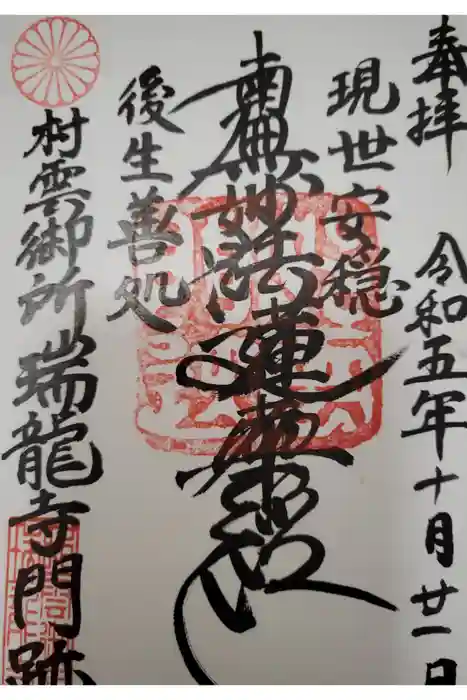 奉拝
令和五年十月廿一日
現世安穏
南無妙法蓮華経
後生善処
村雲御所瑞龍寺門跡